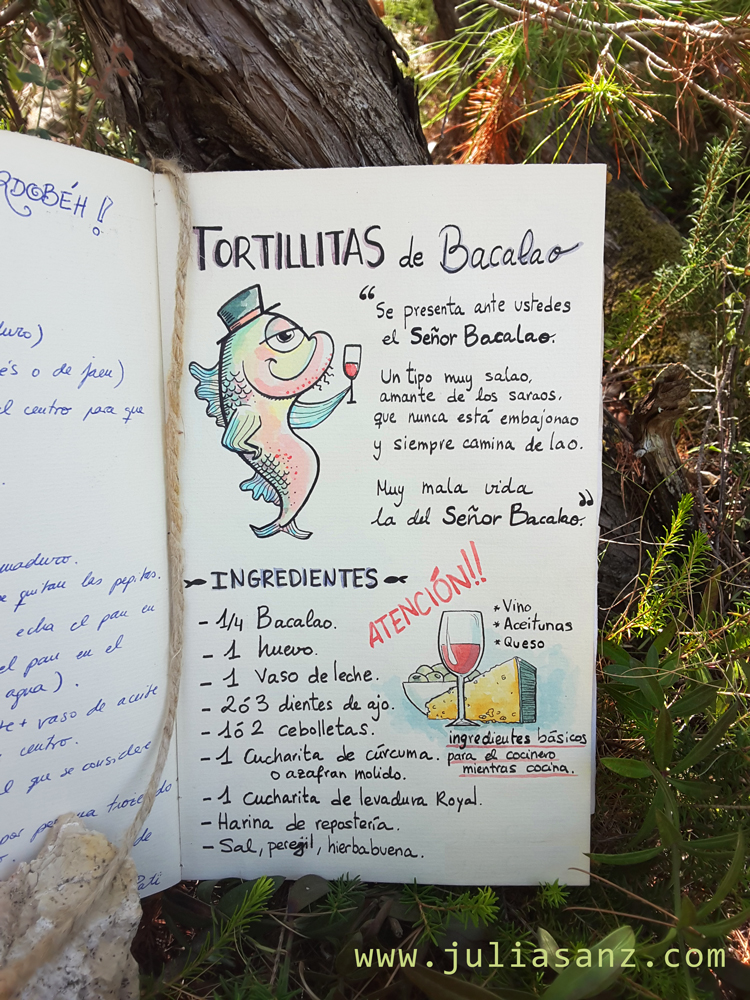 RDOBÉH!
duro)
és o de jaen)
el centro para que
maduro.
e quitan las pepitas.
echa el pan en
el pan en el
agua).
te + vaso de aceite
centro.
l que se considere
troceado
de
Pati
TORTILLITAS de Bacalao
"Se presenta ante ustedes
el Señor Bacalao.
Un tipo muy salao,
amante de los saraos,
que nunca está embajonao
y siempre camina de lao.
Muy mala vida
la del Señor Bacalao."
INGREDIENTES
- 1/4 Bacalao.
- 1 huevo.
- 1 Vaso de leche.
- 2 ó 3 dientes de ajo.
- 1 ó 2 cebolletas.
- 1 Cucharita de cúrcuma.
o azafran molido.
- 1 Cucharita de levadura Royal.
- Harina de repostería.
- Sal, perejil, hierbabuena.
ATENCIÓN!!
* Vino
* Aceitunas
* Queso
ingredientes básicos
para el cocinero
mientras cocina.
www.juliasanz.com